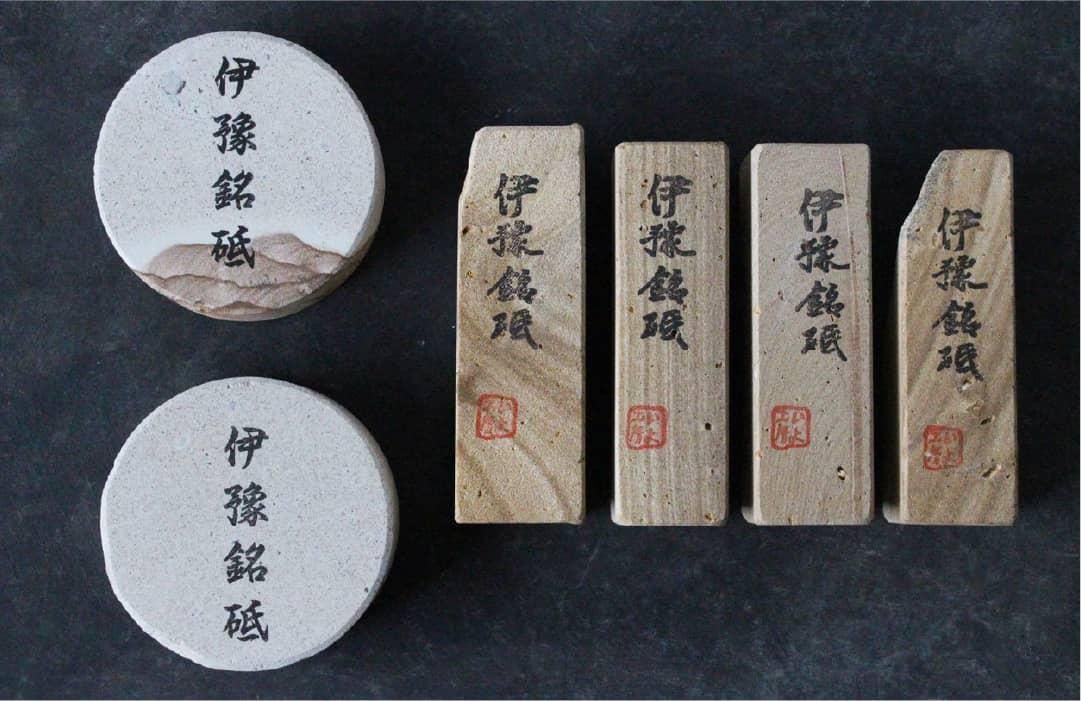 伊豫銘砥
伊豫銘砥
伊豫銘砥
伊豫銘砥
伊豫銘砥
伊豫銘砥